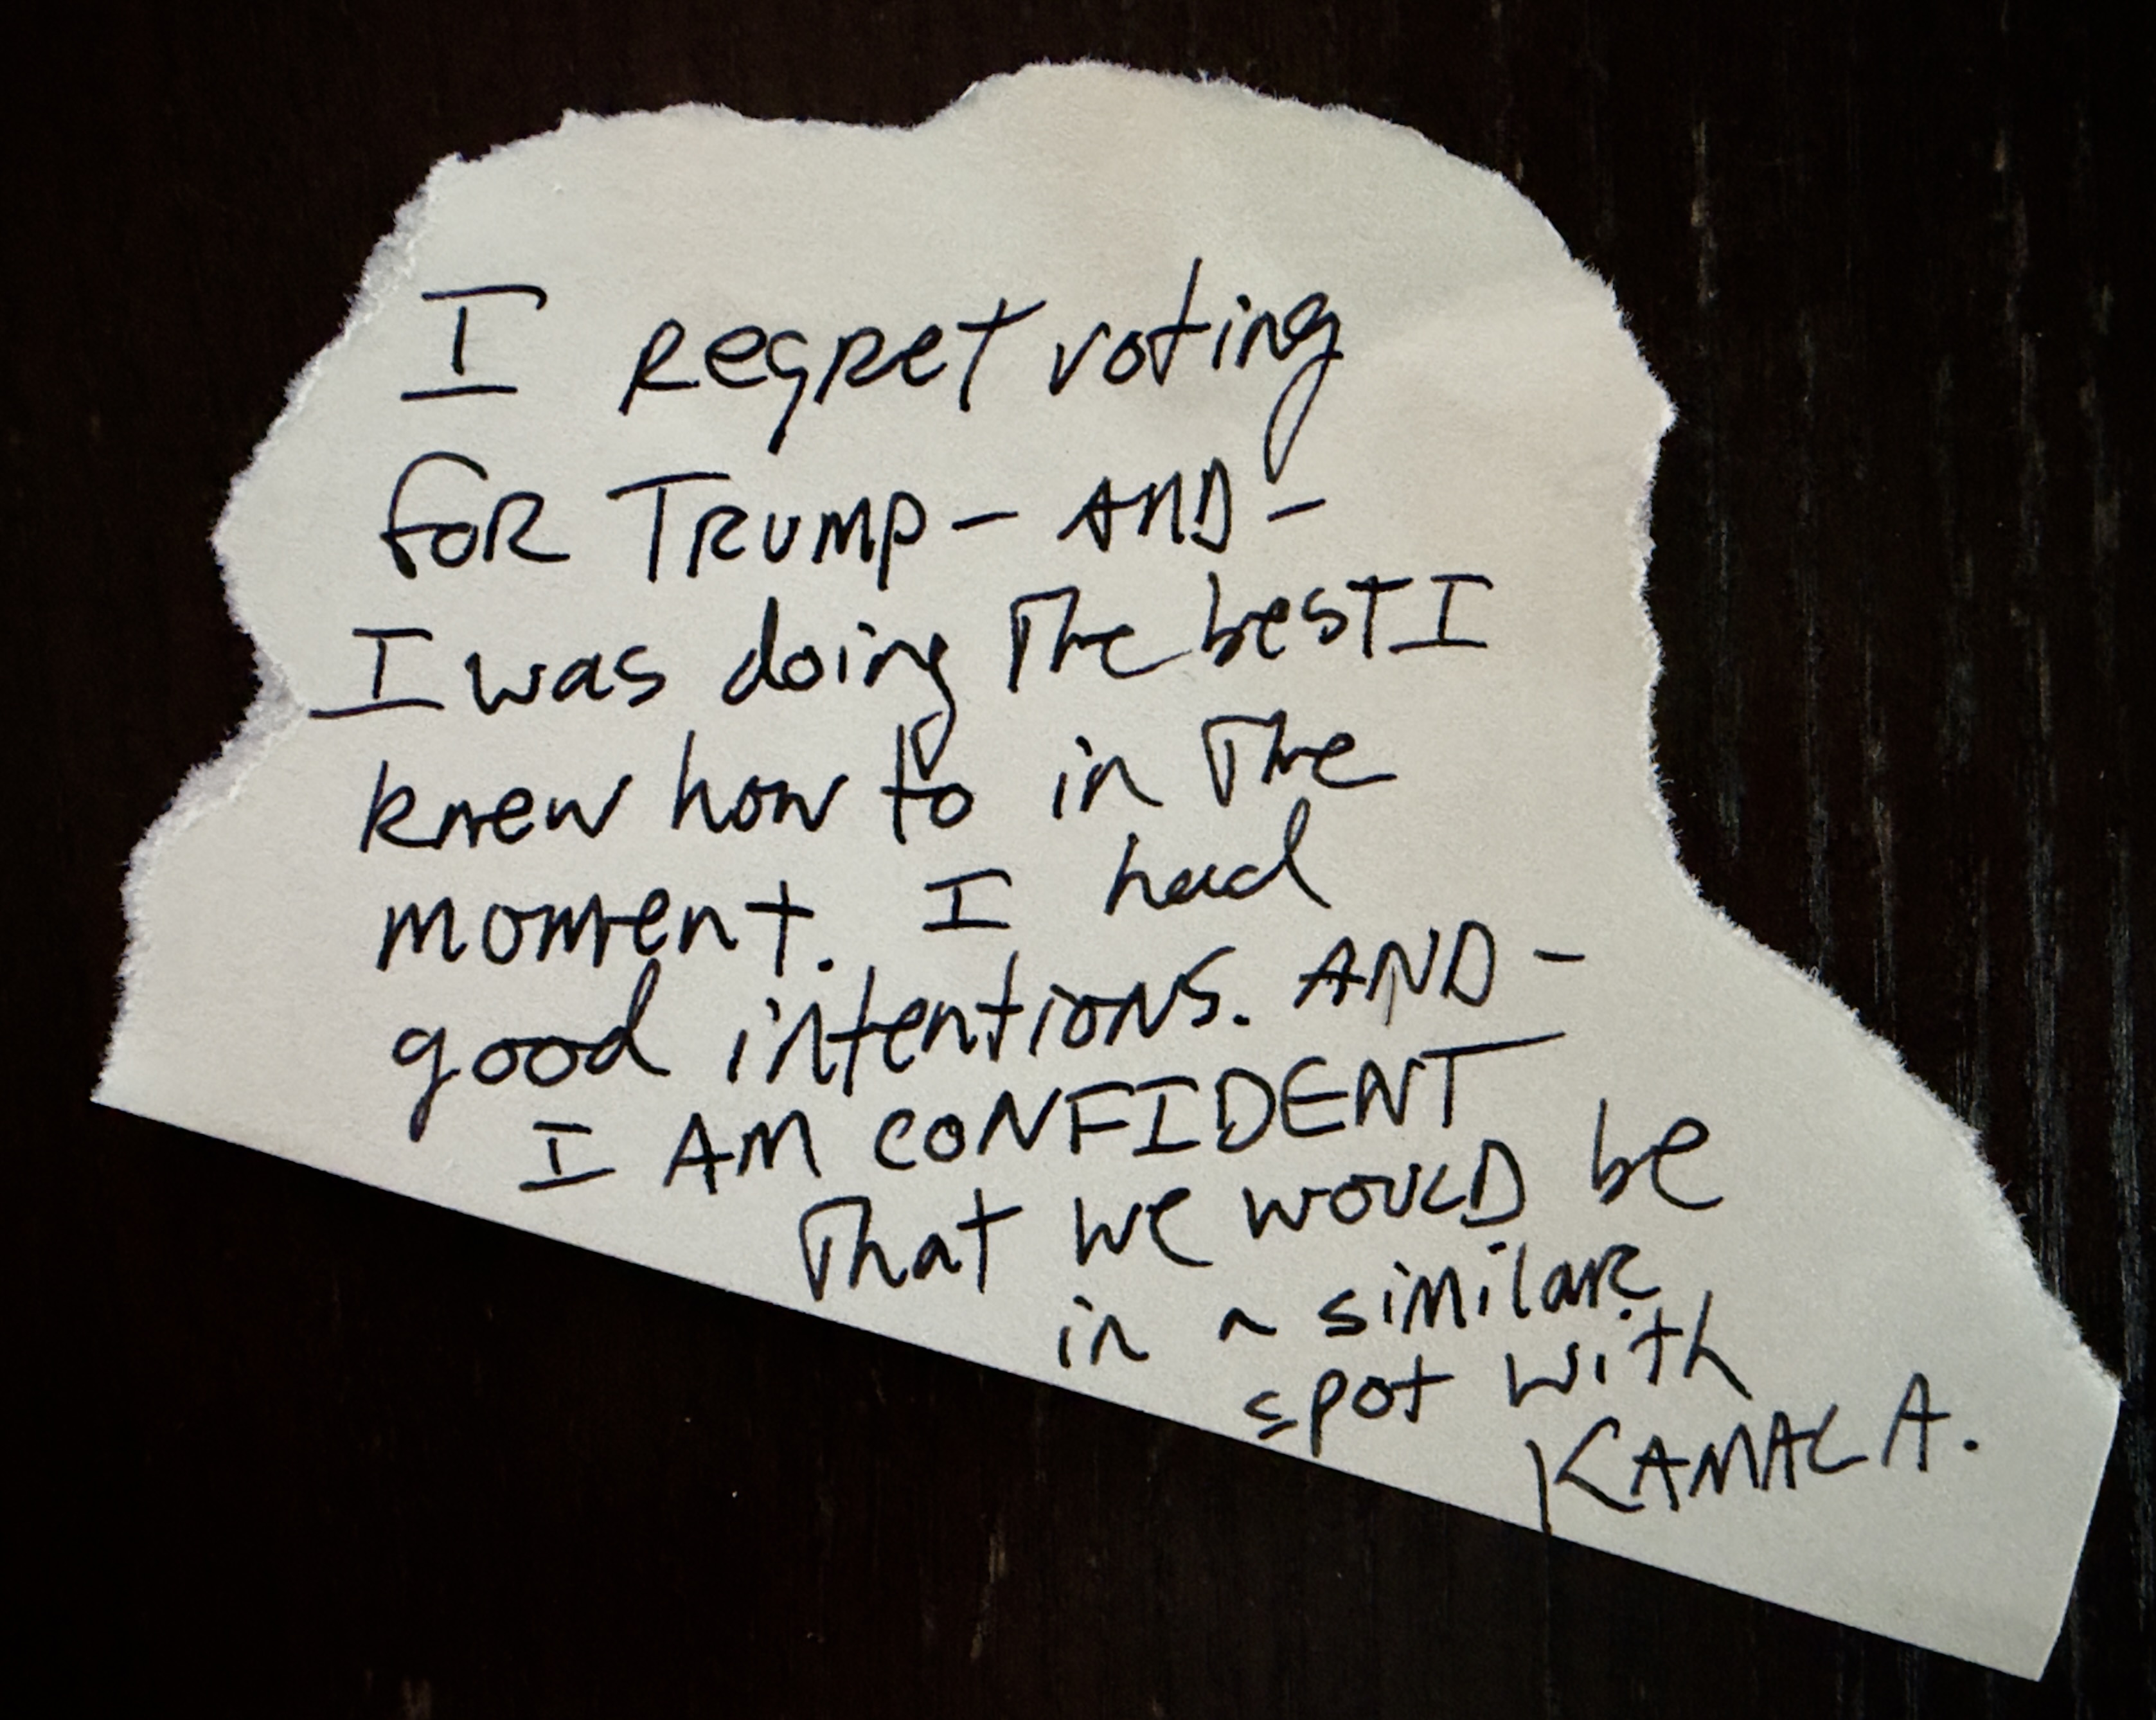 I regret voting
for Trump - AND -
I was doing The best I
knew how to in The
moment. I had
good intentions. AND -
I AM CONFIDENT
That we would be
in a similar
spot with
KAMALA.